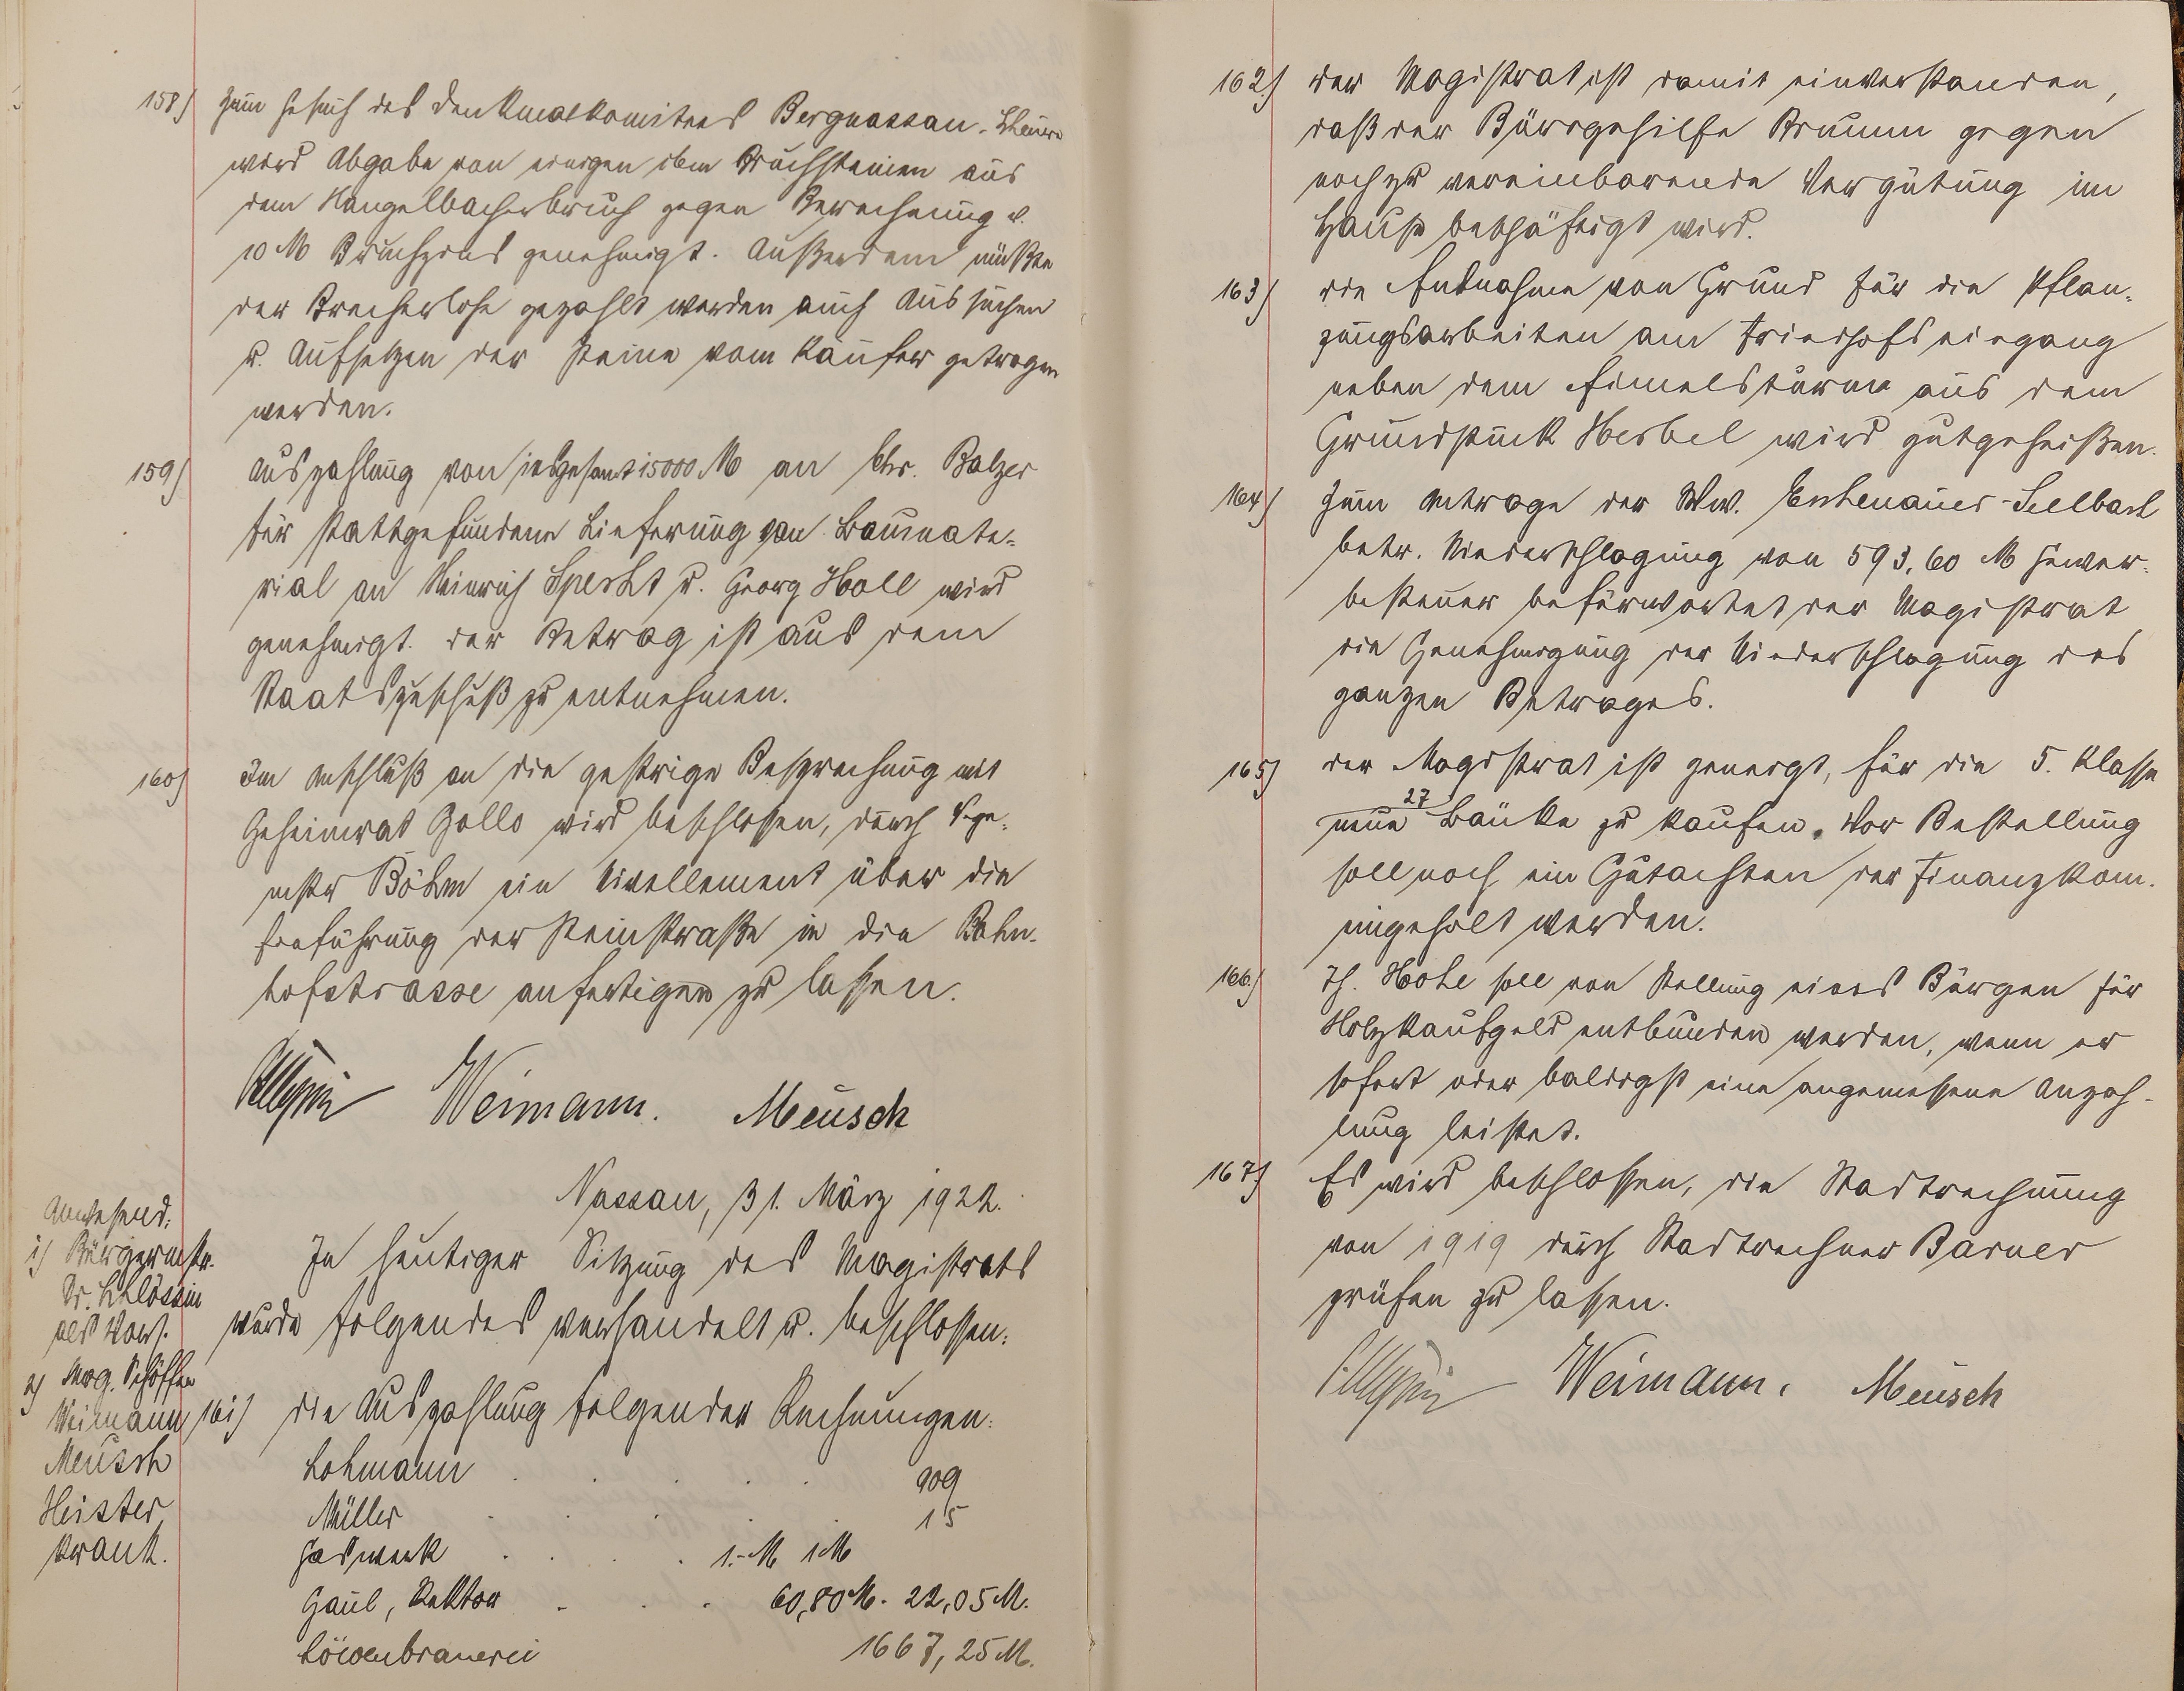 158) Zum Gesuch des Denkmalkomitees Bergnassau-Scheuern
wird Abgabe von einigen cbm Bruchsteinen aus
dem Kangelbacherbruch gegen Berechnung v.
10 M Bruchzins genehmigt. Außerdem müßte
der Brecherlohn gezahlt werden auch Aussuchen
u. Aufsetzen der Steine vom Käufer getragen
werden.
159) Auszahlung von insgesamt 15000 M an Chr. Balzer
für stattgefundene Lieferung von Baumate-
rial an Heinrich Specht u. Georg Holl wird
genehmigt. Der Betrag ist aus dem
Staatszuschuß zu entnehmen.
160) Im Anschluß an die gestrige Besprechung mit
Geheimrat Gollo wird beschlossen, durch
mstr Böhm ein Nivellement über die
Einführung der Steinstraße in die Bahn-
hofstrasse anfertigen zu lassen.
Weimann. Meusch
Nassau, 31. März 1922.
Anwesend:
1) Bürgermstr.
Dr.
als Vors.
2) Mag. Schöffen
Weimann
Meusch
Heister
krank.
In heutiger Sitzung des Magistrats
wurde folgendes verhandelt u. beschlossen:
161) die Auszahlung folgender Rechnungen:
Lohmann . . . . 909
Müller . . . . 15
Gaswerk . . . . 1.-M 1M
Gaul, Rektor . . . 60,80 M. 22,05 M.
Löwenbrauerei 1667,25 M.
162.) der Magistrat ist damit einverstanden,
daß der Bürogehilfe Brumm gegen
noch zu vereinbarende Vergütung im
Hause beschäftigt wird.
163) die Entnahme von Grund für die Pflan-
zungsarbeiten am Friedhofseingang
neben dem Eimelsturm aus dem
Grundstück Herbel wird gutgeheißen.
164) Zum Antrage der Ww. Eschenauer-Seelbach
betr. Niederschlagung von 593,60 M Gewer-
besteuer befürwortet der Magistrat
die Genehmigung der Niederschlagung des
ganzen Betrages.
165) der Magistrat ist geneigt, für die 5. Klasse
27
neue Bänke zu kaufen. Vor Bestellung
soll noch ein Gutachten der Finanzkom.
eingeholt werden.
166) Th. Hohe soll von Stellung eines Bürgen für
Holzkaufgeld entbunden werden, wenn er
sofort oder baldigst eine angemessene Anzah-
lung leistet.
167) Es wird beschlossen, die Stadtrechnung
von 1919 durch Stadtrechner Barner
prüfen zu lassen.
Weimann. Meusch